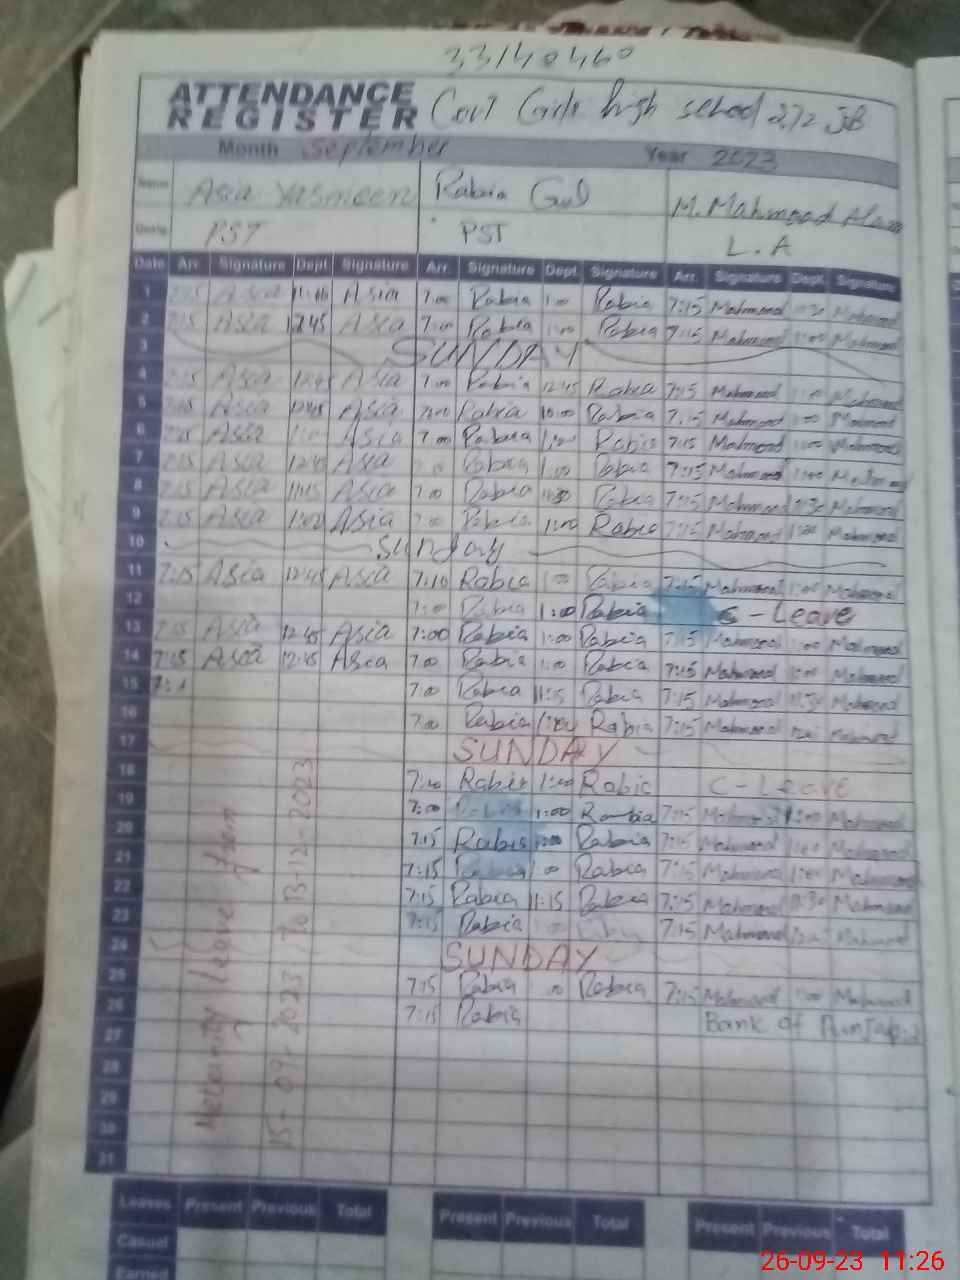 33140460
ATTENDANCE REGISTER Govt Girls high school 272 JB
Month September Year 2023
Name Asia Yasmeen Rabia Gul M. Mahmood Alam
Desig. PST PST L.A
Date Arr. Signature Dept. Signature Arr. Signature Dept. Signature Arr. Signature Dept. Signature
1 Asia Asia 7:00 Rabia 1:00 Rabia 7:15 Mahmood Mahmood
2 7:15 Asia 12:45 Asia 7:00 Rabia 1:00 Rabia 7:15 Mahmood 1:00 Mahmood
3 SUNDAY
4 7:15 Asia 12:45 Asia 7:00 Rabia 12:45 Rabia 7:15 Mahmood 1:00 Mahmood
5 Asia 12:45 Asia 7:00 Rabia Rabia 7:15 Mahmood 1:00 Mahmood
6 Asia Asia 7:00 Rabia 1:00 Rabia 7:15 Mahmood 1:00 Mahmood
7 7:15 Asia 12:45 Asia Rabia 1:00 Rabia 7:15 Mahmood 1:00 Mahmood
8 7:15 Asia 11:15 Asia 7:00 Rabia Rabia 7:15 Mahmood Mahmood
9 7:15 Asia Asia 7:00 Rabia 1:00 Rabia 7:15 Mahmood Mahmood
10 Sunday
11 7:15 Asia 12:45 Asia 7:10 Rabia 1:00 Rabia 7:15 Mahmood 1:00 Mahmood
12 7:00 Rabia 1:00 Rabia C - Leave
13 7:15 Asia 12:45 Asia 7:00 Rabia 1:00 Rabia 7:15 Mahmood 1:00 Mahmood
14 7:15 Asia 12:45 Asia 7:00 Rabia 1:00 Rabia 7:15 Mahmood 1:00 Mahmood
15 7:1 7:00 Rabia 11:15 Rabia 7:15 Mahmood 11:30 Mahmood
16 7:00 Rabia 1:00 Rabia 7:15 Mahmood Mahmood
17 SUNDAY
18 7:00 Rabia 1:00 Rabia C - Leave
19 7:00 1:00 Rabia 7:15 Mahmood 1:00 Mahmood
20 7:15 Rabia 1:00 Rabia 7:15 Mahmood 1:00 Mahmood
21 7:15 Rabia 1:00 Rabia 7:15 Mahmood 1:00 Mahmood
22 7:15 Rabia 11:15 Rabia 7:15 Mahmood 11:30 Mahmood
23 7:15 Rabia 1:00 7:15 Mahmood Mahmood
24 SUNDAY
25 7:15 Rabia Rabia 7:15 Mahmood 1:00 Mahmood
26 7:15 Rabia Bank of Punjab
27
28
29
30
31
Meternity leave from
15-09-2023 To 13-12-2023
Leaves Present Previous Total Present Previous Total Present Previous Total
Casual
Earned
26-09-23 11:26